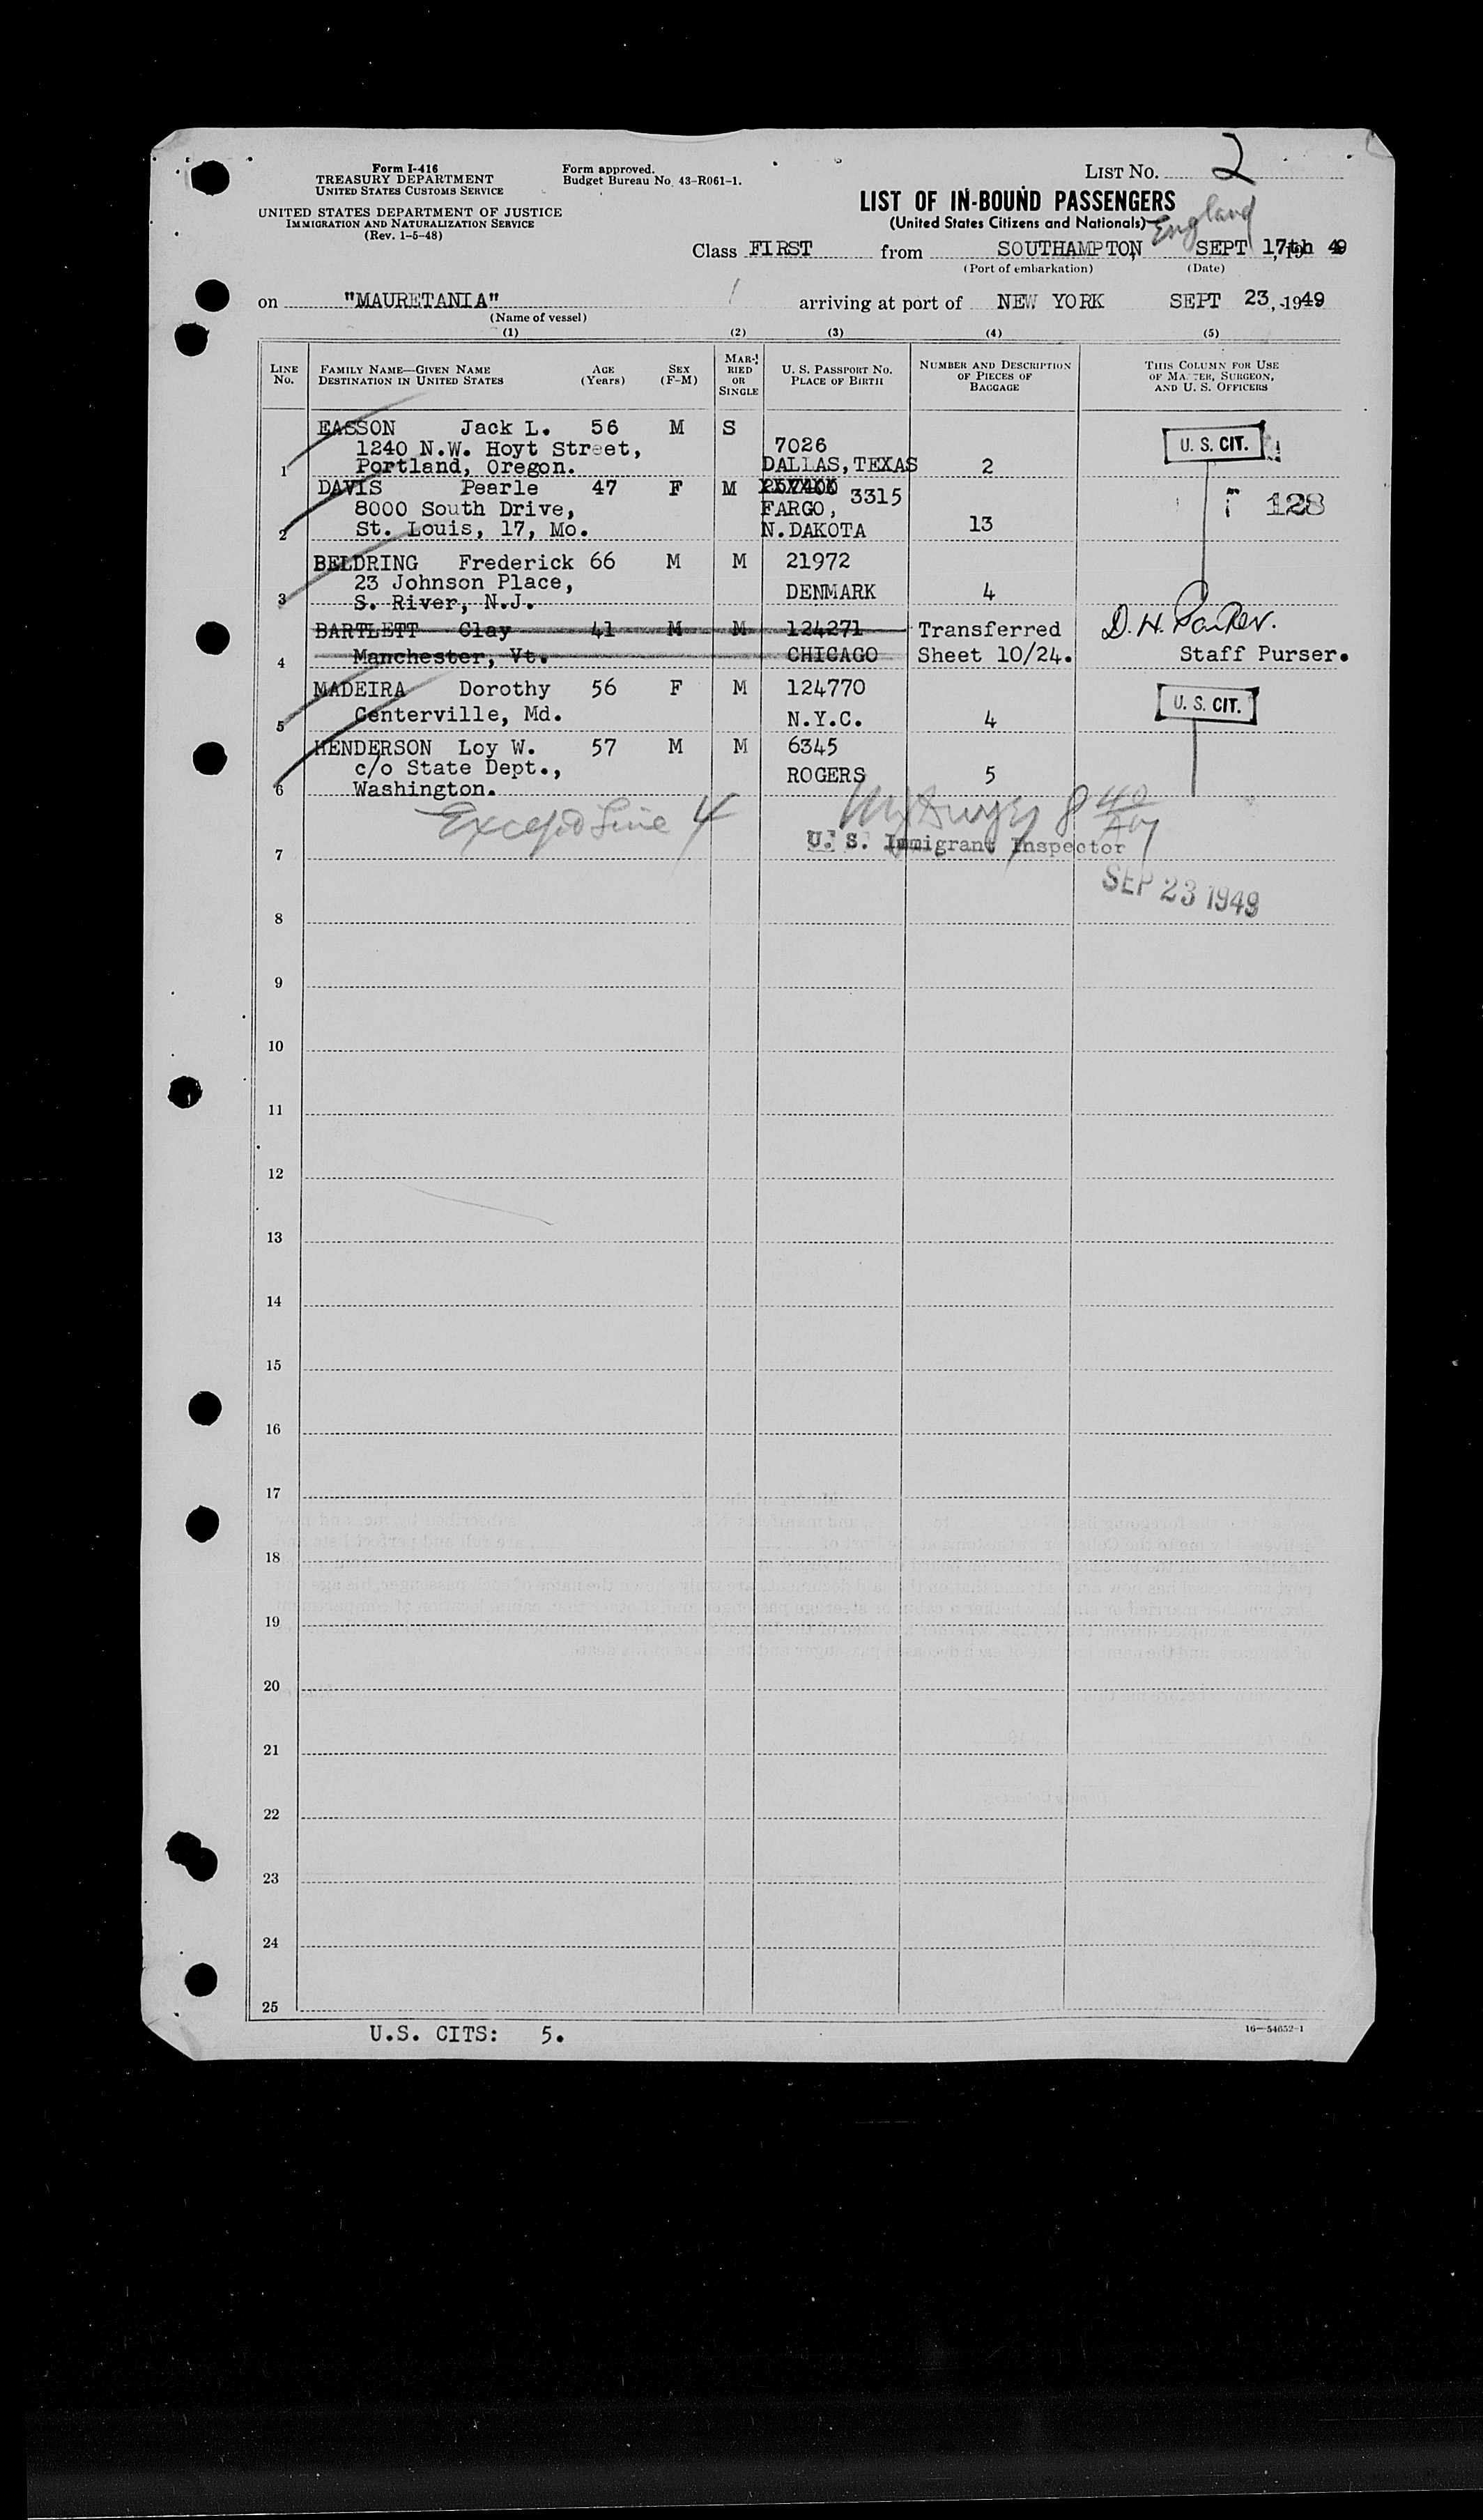 Form I-416
TREASURY DEPARTMENT
UNITED STATES CUSTOMS SERVICE
UNITED STATES DEPARTMENT OF JUSTICE
IMMIGRATION AND NATURALIZATION SERVICE
(Rev. 1-5-48)
Form approved.
Budget Bureau No. 43-R061-1.
LIST NO. 2
LIST OF IN-BOUND PASSENGERS
(United States Citizens and Nationals)
England
Class FIRST from SOUTHAMPTON, SEPT 17th 49
(Port of embarkation) (Date)
on "MAURETANIA" arriving at port of NEW YORK SEPT 23, 1949
(Name of vessel)
(1) (2) (3) (4) (5)
LINE No. FAMILY NAME—GIVEN NAME DESTINATION IN UNITED STATES AGE (Years) SEX (F-M) MARRIED OR SINGLE U. S. PASSPORT No. PLACE OF BIRTH NUMBER AND DESCRIPTION OF PIECES OF BAGGAGE THIS COLUMN FOR USE OF MASTER, SURGEON, AND U. S. OFFICERS
EASSON Jack L. 56 M S
1240 N.W. Hoyt Street, 7026 U. S. CIT.
1 Portland, Oregon. DALLAS, TEXAS 2
DAVIS Pearle 47 F M 3315
8000 South Drive, FARGO, 128
2 St. Louis, 17, Mo. N. DAKOTA 13
BELDRING Frederick 66 M M 21972
23 Johnson Place, DENMARK 4
3 S. River, N.J.
BARTLETT Clay 41 M M 124271 Transferred D. H. Parker.
4 Manchester, Vt. CHICAGO Sheet 10/24. Staff Purser.
MADEIRA Dorothy 56 F M 124770 U. S. CIT.
5 Centerville, Md. N.Y.C. 4
HENDERSON Loy W. 57 M M 6345
c/o State Dept., ROGERS 5
6 Washington.
Except Line 4
7 U. S. Immigrant Inspector
SEP 23 1949
8
9
10
11
12
13
14
15
16
17
18
19
20
21
22
23
24
25
U.S. CITS: 5.
16—54652-1